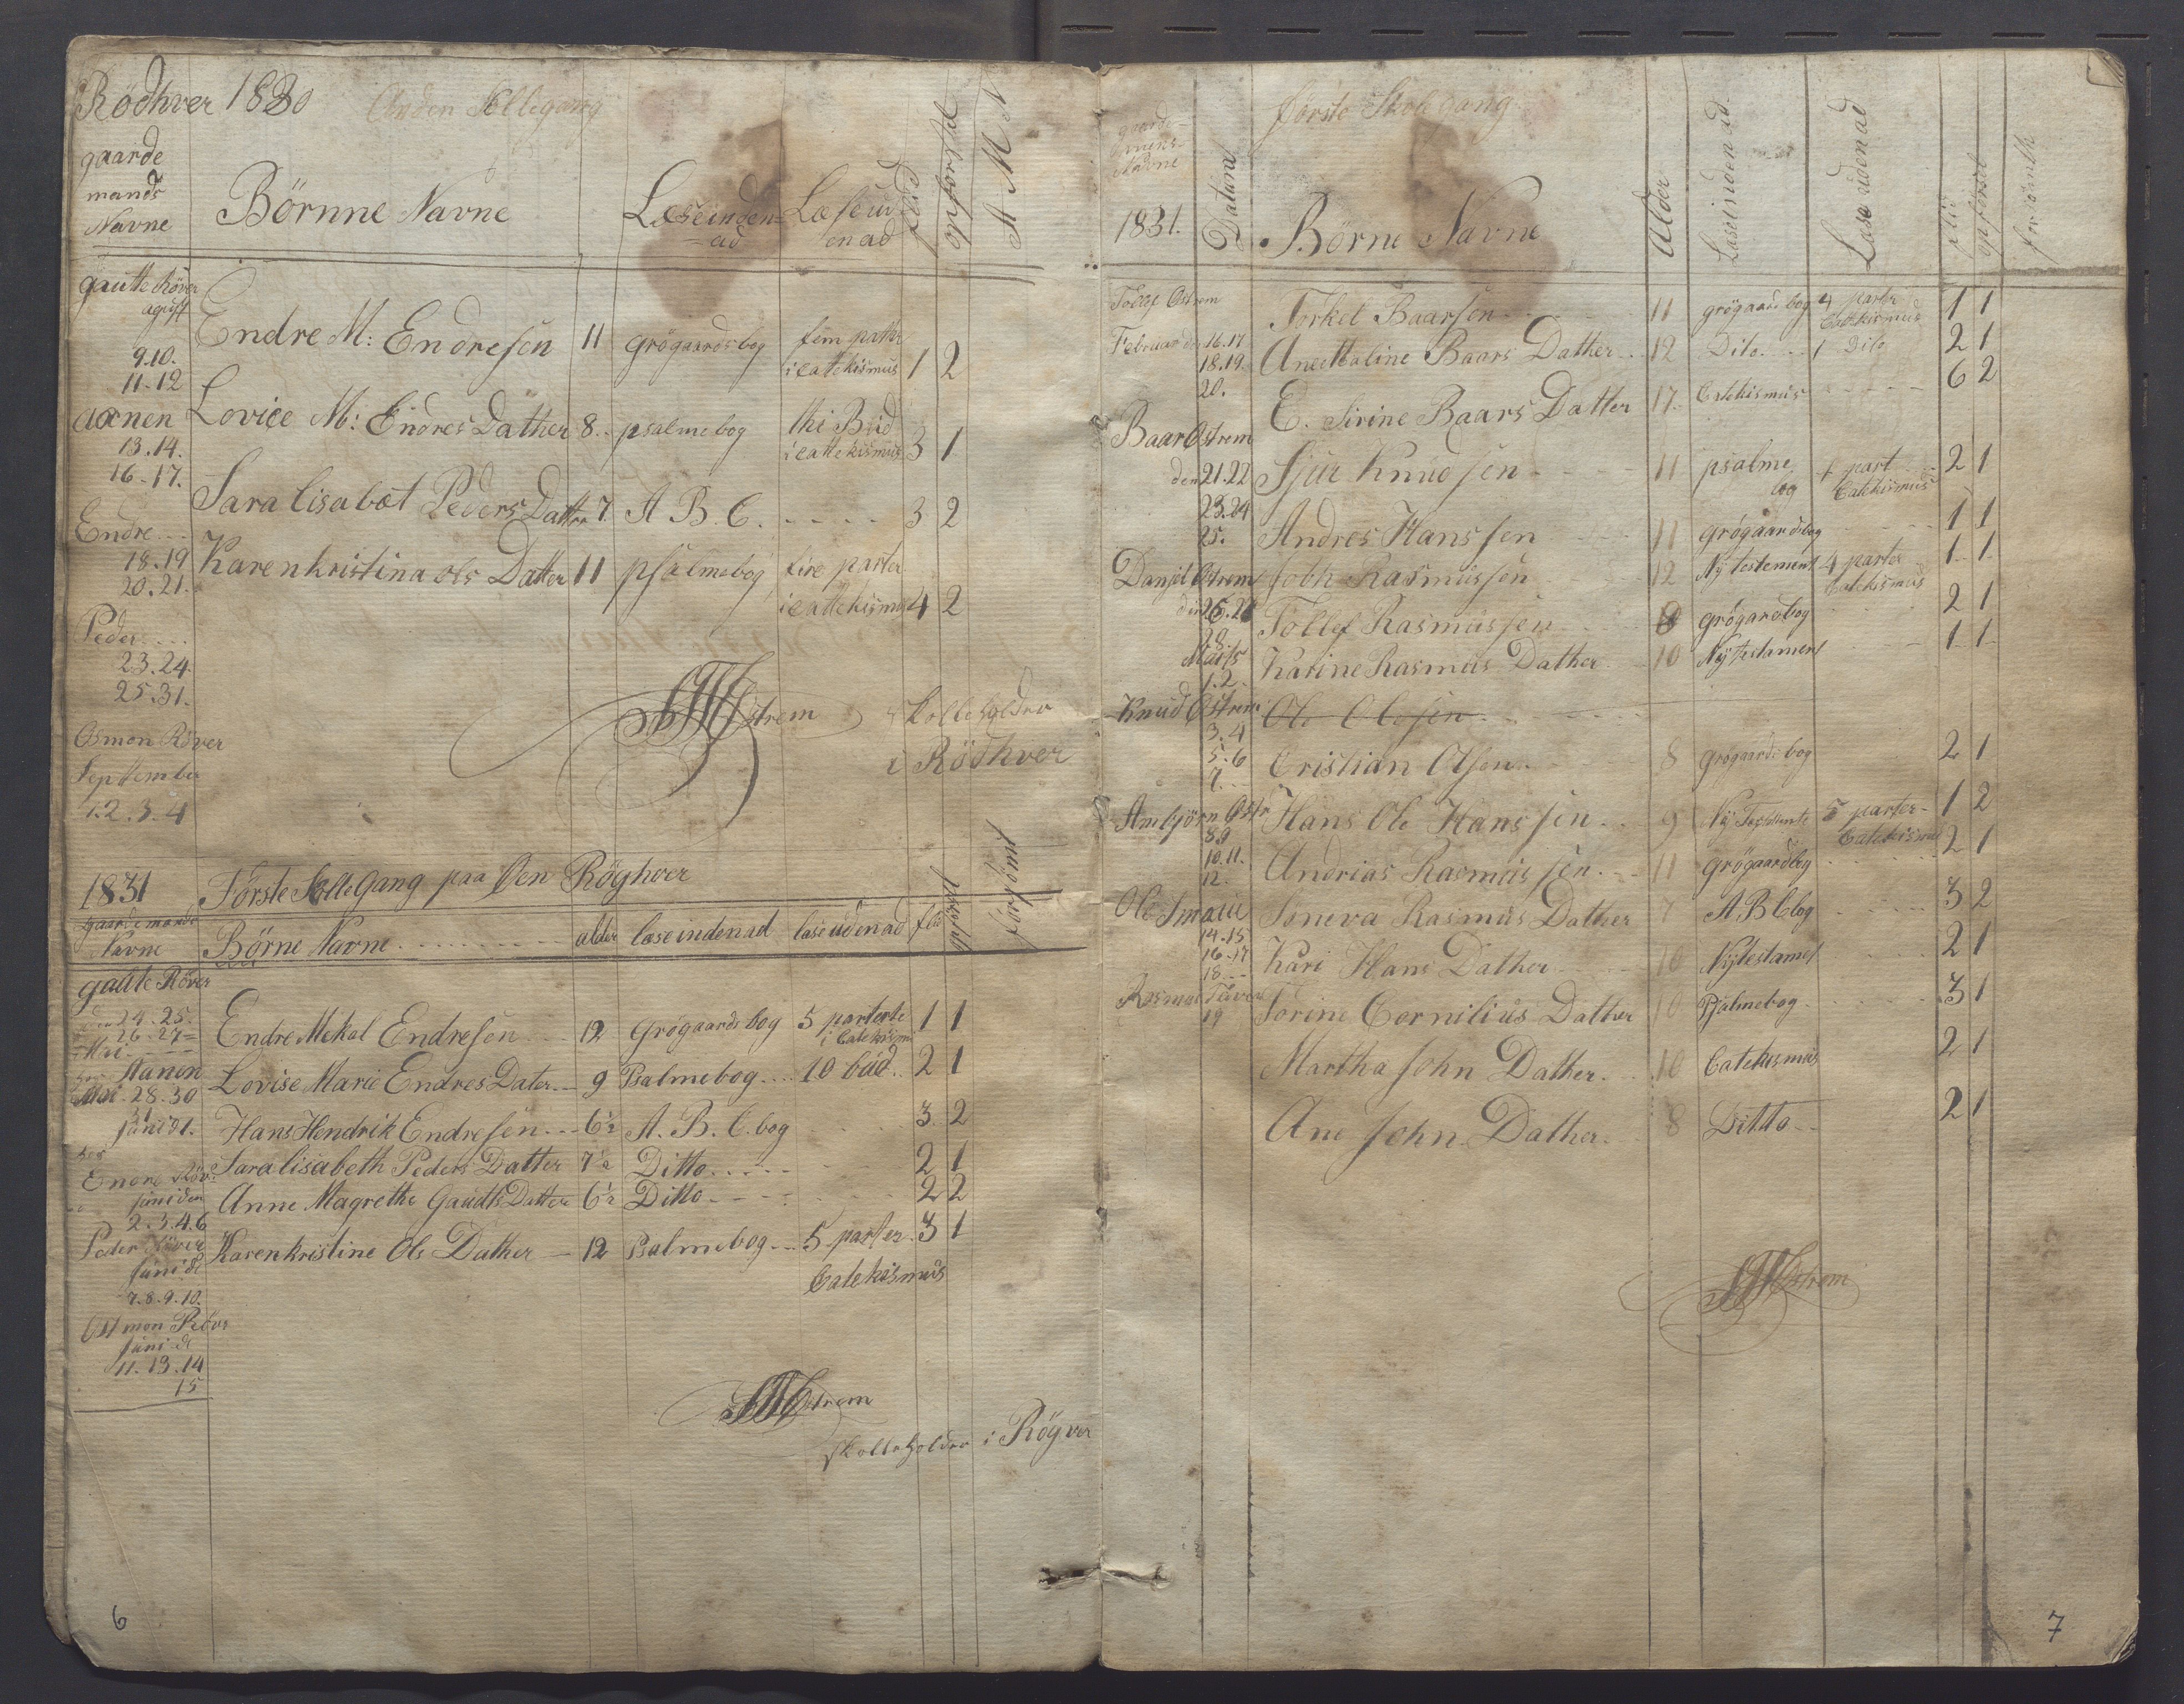 Rödhver 1830 Anden Skollegang
gaarde
mands
Navne
Börnne Navne
Læseinden
=ad
Læseud
enad
flid
opförssel
A M N
gautte Röver
agust
9.10.
11-12
Endre M: Endresen 11 grögaardsbog fem parter
i cattekismus 1 2
aanen
13.14.
16-17.
Lovice M: Endres Dather 8.. psalmebog thi Bud
i cattekismus 3 1
Sara lisabet Peders Datter 7. A B. C. - - - - - 3 2
Endre...
18.19
20.21.
Karenkristina ols Datter 11 psalmebog fire parter
i cattekismus 4 2
Peder....
23.24.
25.31.
Östrem Skolleholder
i Rödhver
Osmon Röver
September
1.2.3.4
1831 Förste Skolle Gang paa Den Röghver
gaardemands
Navne
Börne Navne alder læse indenad læse udenad flid opförsel forsömt
gautte Röver
den 24-25.
26-27-
Mai
Endre Mekal Endresen 12 Grögaards bog 5 parterte
i Catekism 1 1
Aanen
Mai. 28.30
31
juni d 1.
Lovise Marie Endres Dater.... 9 Psalmebog.... 10 bud.. 2 1
Hans Hendrik Endresen... 6½ A. B. C. bog 3 2
hos
Endre Röver
juni den
2.3.4.6
Saralisabeth Peders Datter 7½ Ditto..... 2 1
Anne Magrethe Gaudts Datter 6½ Ditto 2 2
Peder Röver
juni d
7.8.9.10.
Karenkristine Ols Dather 12 Psalmebog... 5 parter. 3 1
Catekismus
Osmon Röver
juni d
11.13.14
15
Östrem
skolleholder i Rögver
6
Förste Skole gang
gaarde-
Navne
1831. Datum Börne Navne Alder Læseindenad Læse udenad flid opförsel forsömth
Tollef Östrem
Februar den 16.17
18.19.
20.
Torkel Baarsen 11 grögaardbog 4 parter
Catekismus 1 1
Ane Maline Baars Dather 12 Dito.... 1 Dito 2 1
E. Sirine Baars Datter 17. Catekismus 6 2
Baar Östrem
den 21.22
23.24
25.
Sjur Knudsen 11 psalme
bog 1 part
Catekismus 2 1
Andres Hanssen 11 grögaardsbog 1 1
Danjel Östrem
den 26.28
Marts
1.2.
John Rasmussen 12 Nÿ testement 4 parter
Catekismus 1 1
Tollef Rasmussen 8 grögardbog 2 1
Karine Rasmus Dather 10 Nÿ testament 1 1
Knud Östrem
3.4
5.6
7...
Ole Olesen
Cristian Olsen 8 grögaards bog 2 1
Ambjörn Östr
8.9
10.11.
12.
Hans Ole Hanssen 9 Nÿ Testamente 5 parter-
Catekismus 1 2
Andrias Rasmussen 11 grögaardbog 2 1
Ole Smaue
14-15
16-17
18--
Soneva Rasmus Dather 7 A B C bog 3 2
Kari Hans Dather 10 Nÿtestament 2 1
Rasmus
19
Torine Cornilius Datter 10 Psalmebog 3 1
Martha John Dather. 10 Catekismus 2 1
Ane John Dather. 8 Ditto 2 1
Östrem
7